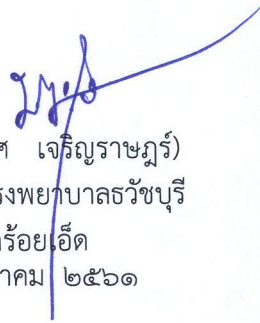 ศ เจริญราษฎร์)
รงพยาบาลธวัชบุรี
ร้อยเอ็ด
าคม ๒๕๖๑